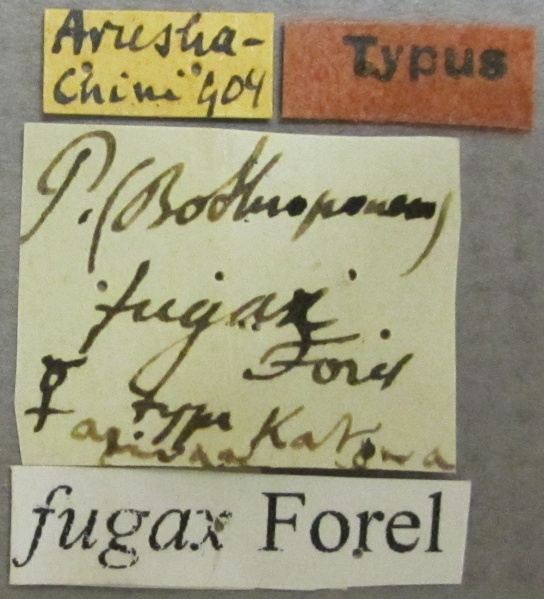 Arusha-
Chini 904
Typus
P. (Bothroponera)
fugax
Forel
☿ type
Katona
fugax Forel